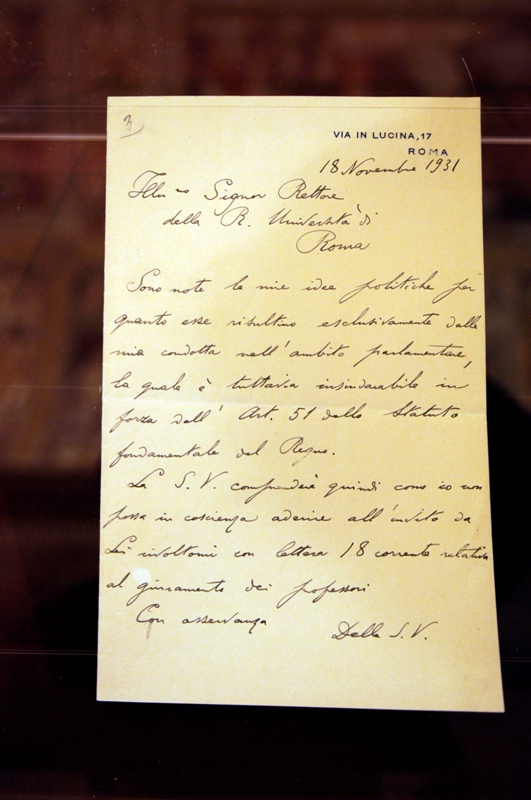 3
VIA IN LUCINA, 17
ROMA
18 Novembre 1931
Illmo Signor Rettore
della R. Università di
Roma
Sono note le mie idee politiche per
quanto esse risultino esclusivamente dalla
mia condotta nell'ambito parlamentare,
la quale è tuttavia insindacabile in
forza dell' Art. 51 dello Statuto
fondamentale del Regno.
La S. V. comprenderà quindi come io non
possa in coscienza aderire all'invito da
Lei rivoltomi con lettera 18 corrente relativa
al giuramento dei professori
Con osservanza
Della S. V.